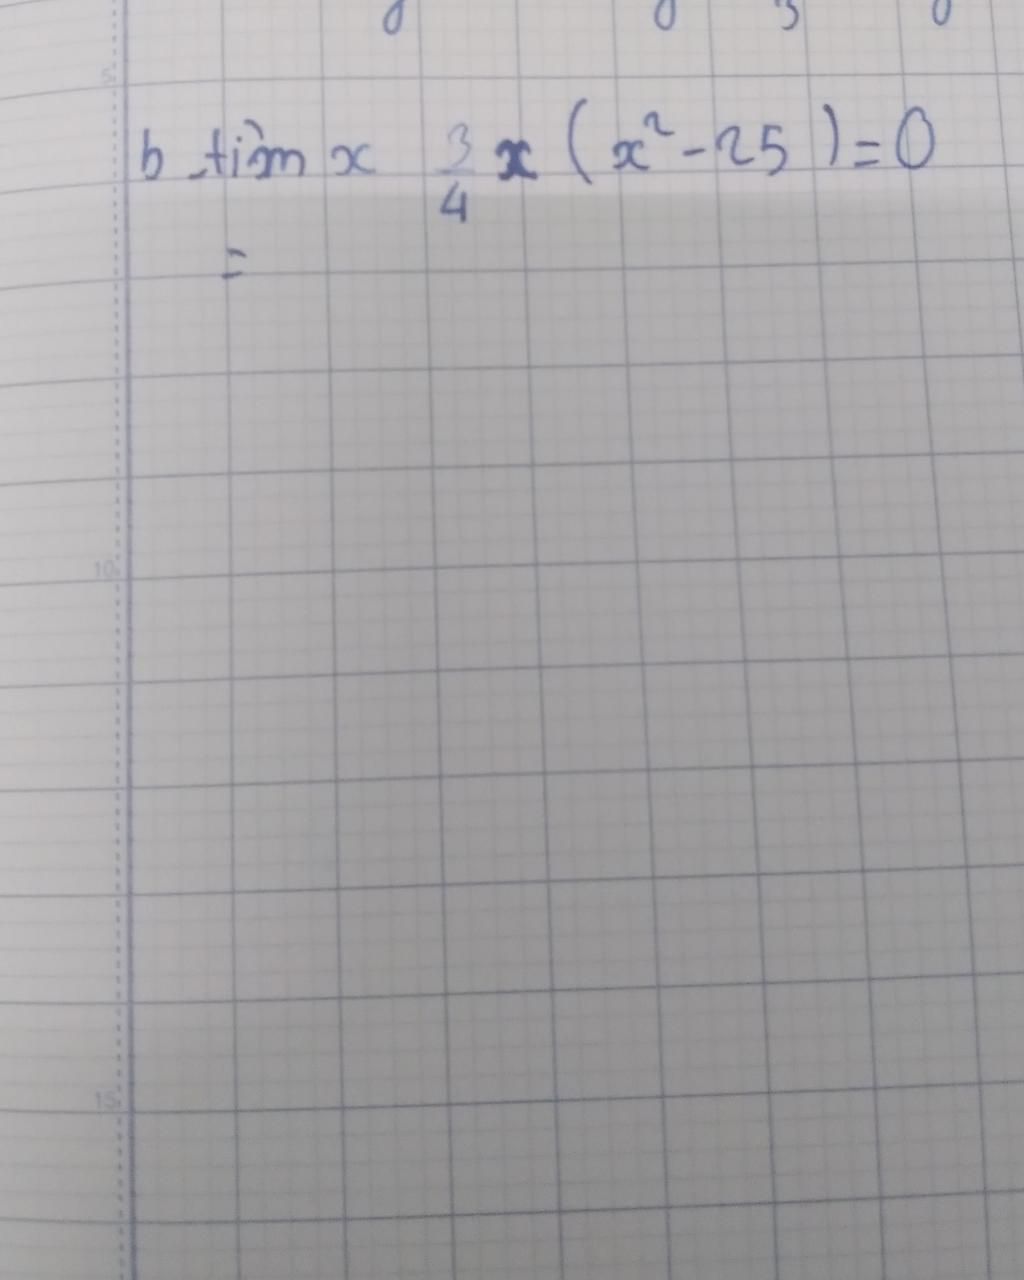 5
b tìm x 3/4 x (x² - 25) = 0
=
10
15